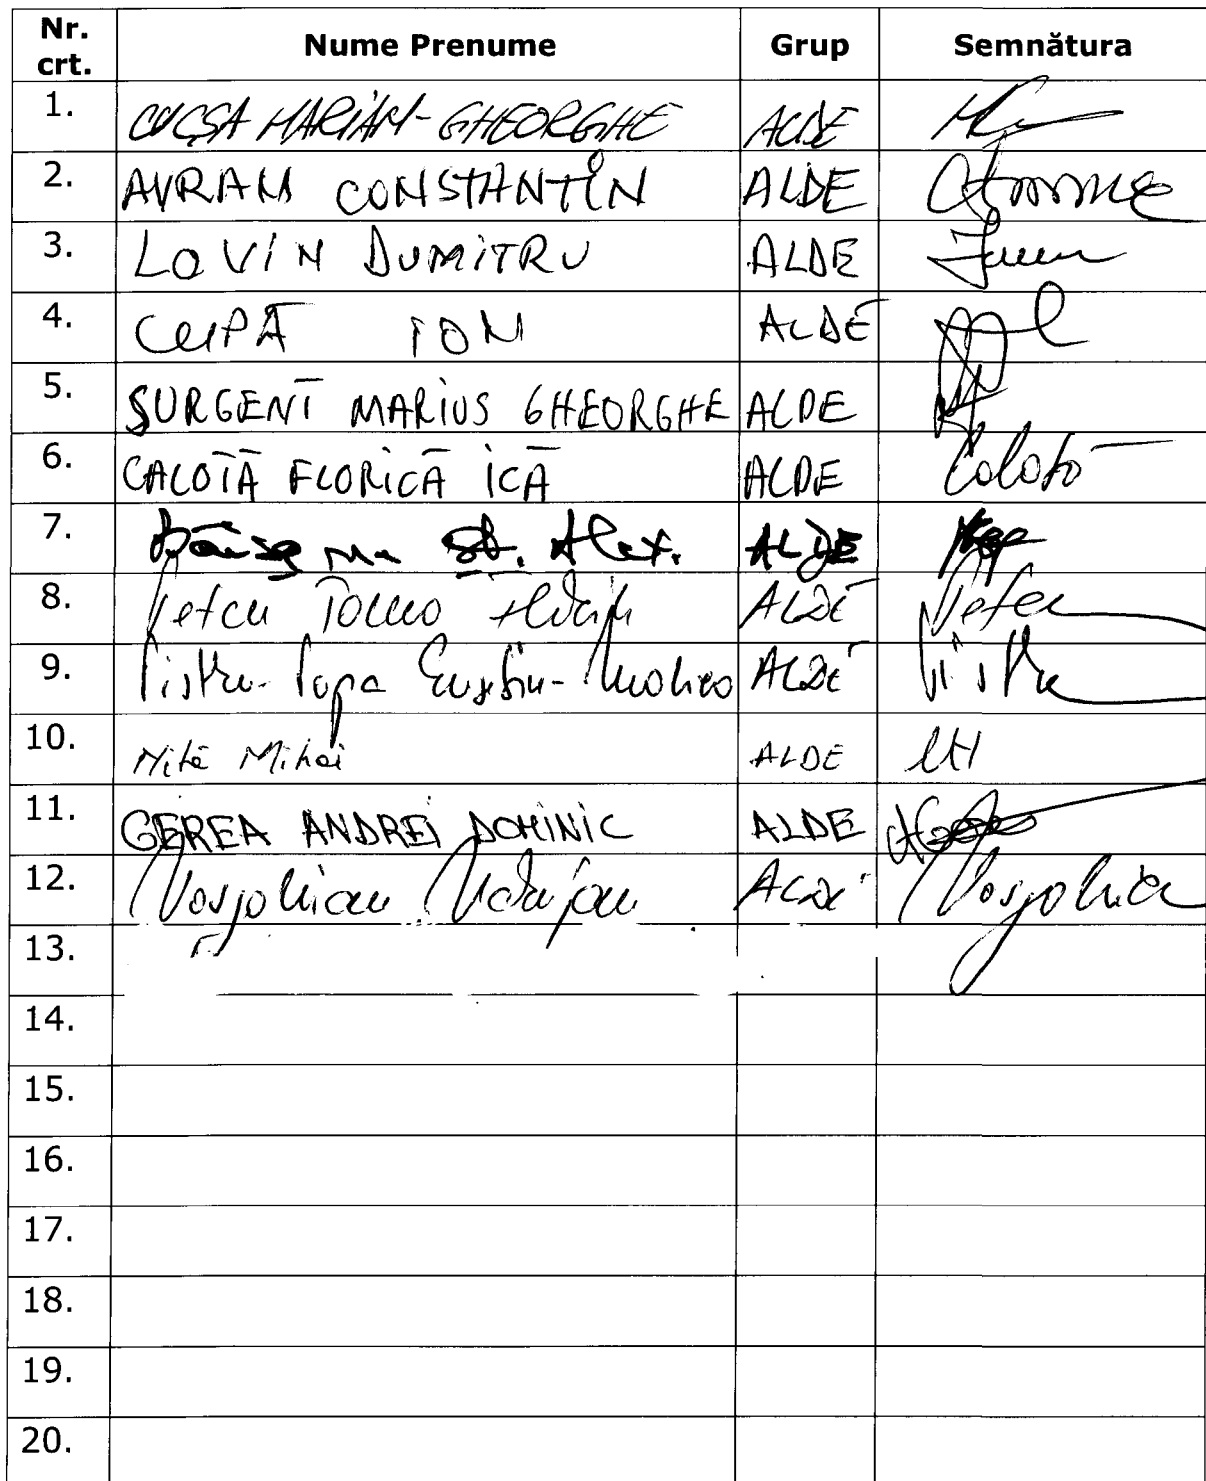 Nr. crt. Nume Prenume Grup Semnătura
1. CUCȘA MARIAN-GHEORGHE ALDE
2. AVRAM CONSTANTIN ALDE
3. LOVIN DUMITRU ALDE
4. CUPĂ ION ALDE
5. SURGENT MARIUS GHEORGHE ALDE
6. CALOTĂ FLORICĂ ICĂ ALDE Calotă
7. St. Alex. ALDE
8. Petcu Toma ALDE Petcu
9. Pistru-Popa ALDE Pistru
10. Niță Mihai ALDE
11. GEREA ANDREI DOMINIC ALDE
12. Vosganian Varujan ALDE
13.
14.
15.
16.
17.
18.
19.
20.